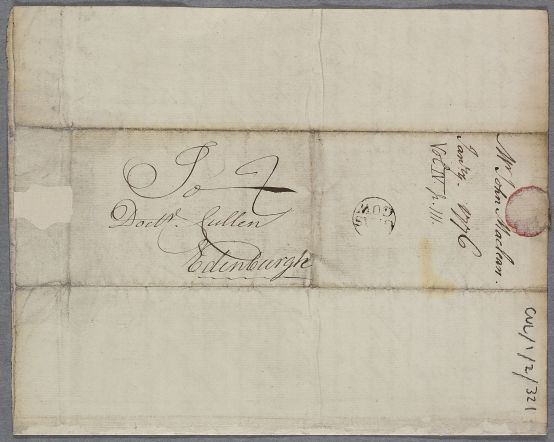 To
Doctr. Cullen
Edenburgh
Mr John Maclean.
Janry. 1776
Vol IV p. 111.
CUL/1/2/321